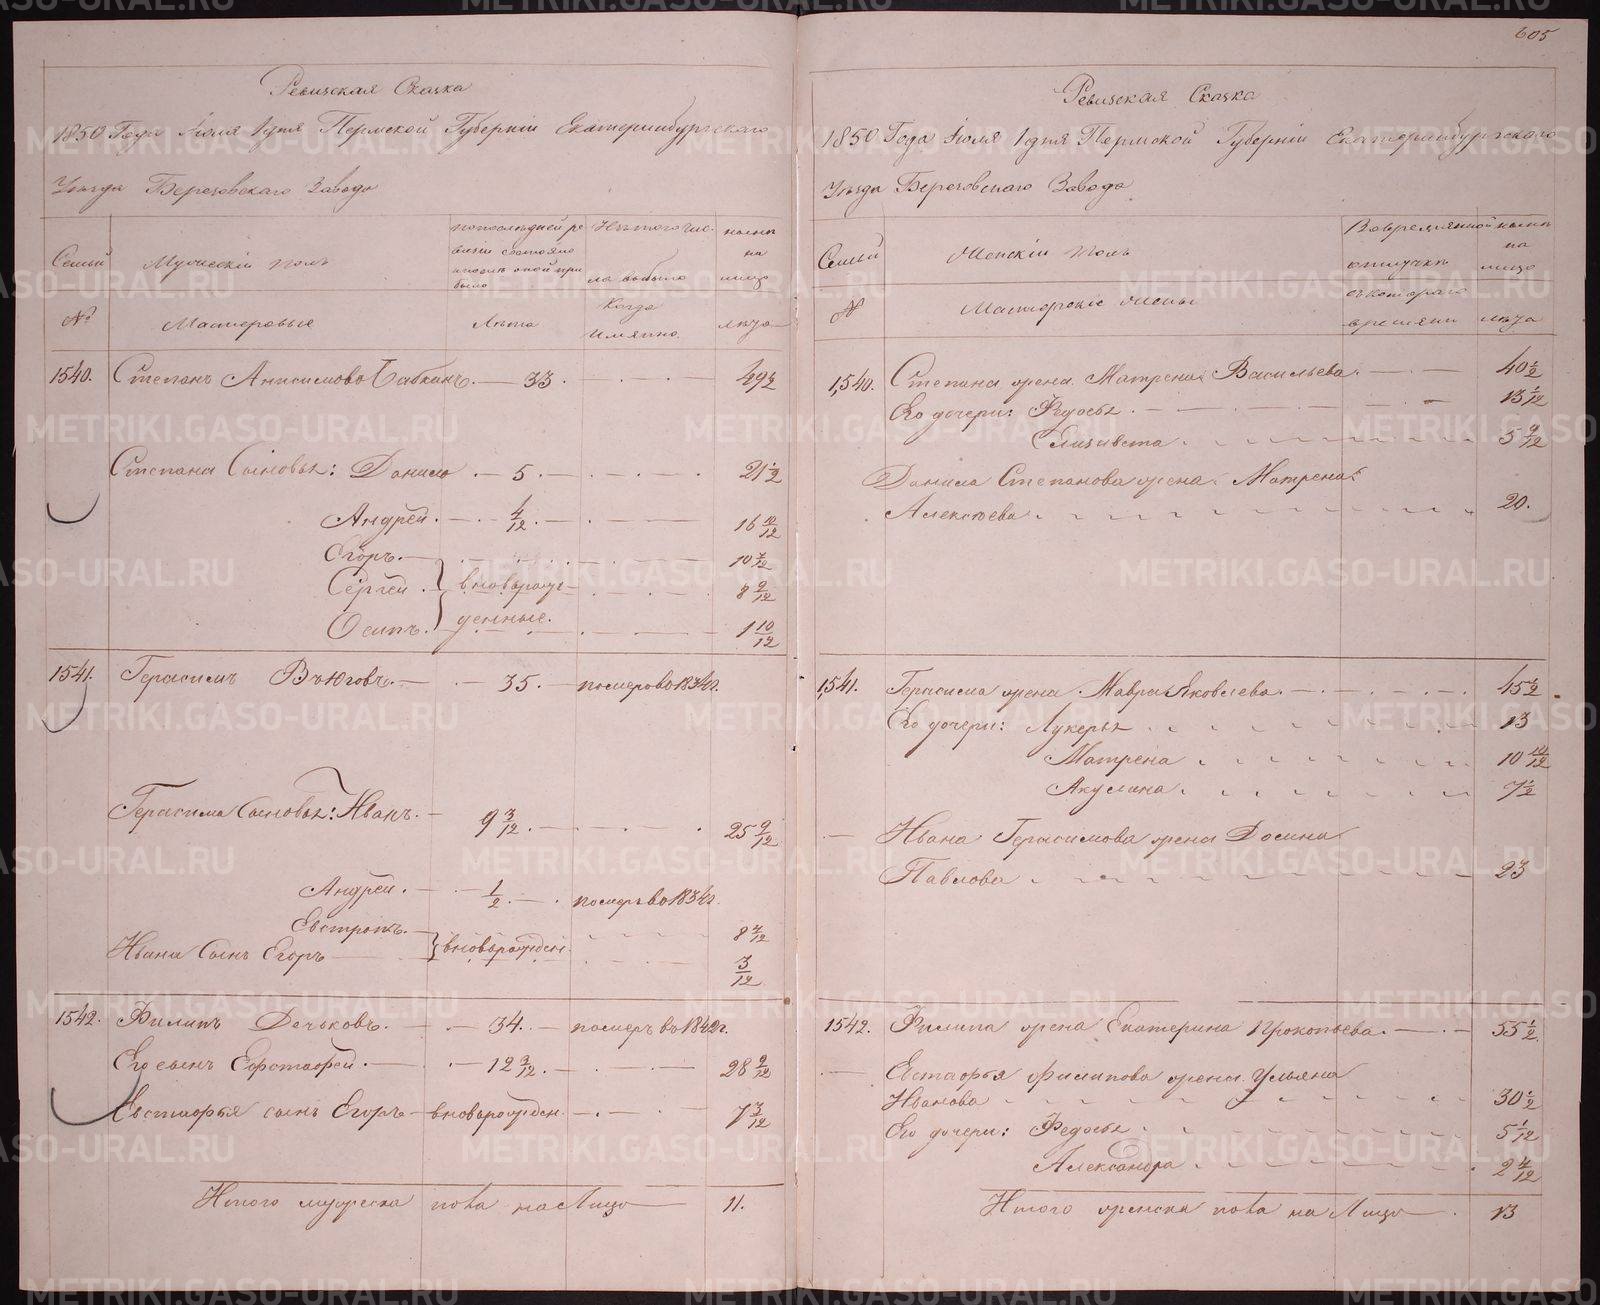 605
Ревизская Сказка
1850 Года Июля 1 дня Пермской Губерніи Екатеринбургскаго
Уѣзда Березовскаго Завода
Семьи
№
Мужескій полъ
Мастеровые
по последней ре
визіи состояло
и послѣ оной при
было
Лѣта
Изъ того чис-
ла выбыло
Когда
Имянно
нынѣ
на
лицо
лѣта
1540. Степанъ Анисимовъ Бабкинъ. 33. 49 1/2
Степана Сыновья: Данило 5. 21 1/2
Андрей. 4/12. 16 10/12
Егоръ. 10 7/12
Сергей вноворож- 8 9/12
Осипъ. денные. 1 10/12
1541. Герасимъ Вьюговъ. 35. померъ во 1834 г.
Герасима Сыновья: Иванъ. 9 3/12. 25 9/12
Андрей. 1/2. померъ во 1834 г.
Евстропъ. 8 4/12
Ивана Сынъ Егоръ вноворожден. 3/12
1542. Филипъ Дечковъ. 34. померъ въ 1842 г.
Его сынъ Евстафей. 12 3/12. 28 9/12
Евстафья сынъ Егоръ вноворожден. 7 3/12
Итого мужеска пола на Лицо 11.
Ревизская Сказка
1850 Года Июля 1 дня Пермской Губерніи Екатеринбургскаго
Уѣзда Березовскаго Завода
Семьи
№
Женскій полъ
Мастерскіе жены
Во временной
отлучкѣ
съ котораго
времяни
нынѣ
на
лицо
лѣта
1,540. Степана жена Матрена Васильева. 40 1/2
Его дочери: Федосья. 13 1/12
Елизавета. 5 9/12
Данила Степанова жена Матрена
Алексѣева. 20.
1,541. Герасима жена Мавра Яковлева. 45 1/2
Его дочери: Лукерья 13
Матрена 10 10/12
Акулина. 7 1/2
Ивана Герасимова жена Домина
Павлова 23
1542. Филипа жена Екатерина Прокопьева. 55 1/2
Евстафья Филипова жена Ульяна
Иванова 30 1/2
Его дочери: Федосья 5 1/12
Александра 2 4/12
Итого женска пола на Лицо 13
METRIKI.GASO-URAL.RU